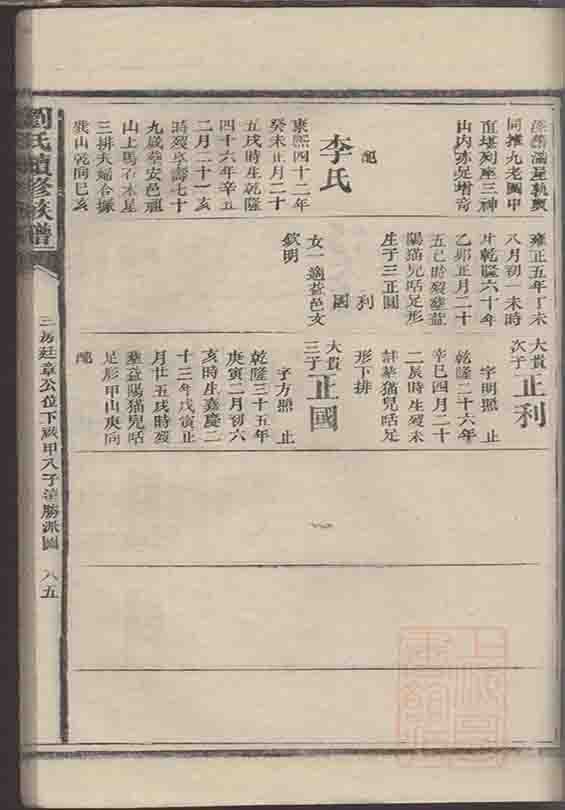 同擁九老圖中
直堪列座三神
山內亦足增奇
配
李氏
康熙四十二年
癸未正月二十
五戌時生乾隆
四十六年辛丑
二月二十一亥
時歿享壽七十
九歲葬安邑祖
山上馬石木星
三排夫婦合塚
戌山乾向巳亥
雍正五年丁未
八月初一未時
歿乾隆六十年
乙卯正月二十
五巳時歿葬益
陽猫兒咶足形
生子三正圖
利
國
女一適益邑文
欽明
大貴
次子
正利
字明照
止
乾隆二十六年
辛巳四月二十
二辰時生歿未
詳葬猫兒咶足
形下排
大貴
三子
正國
字方照
止
乾隆三十五年
庚寅二月初六
亥時生嘉慶二
十三年戊寅正
月廿五戌時歿
葬益陽猫兒咶
足形甲山庚向
配
劉氏續修族譜
三房廷章公位下
甲八子
勝派圖
八五
上海圖
書館藏